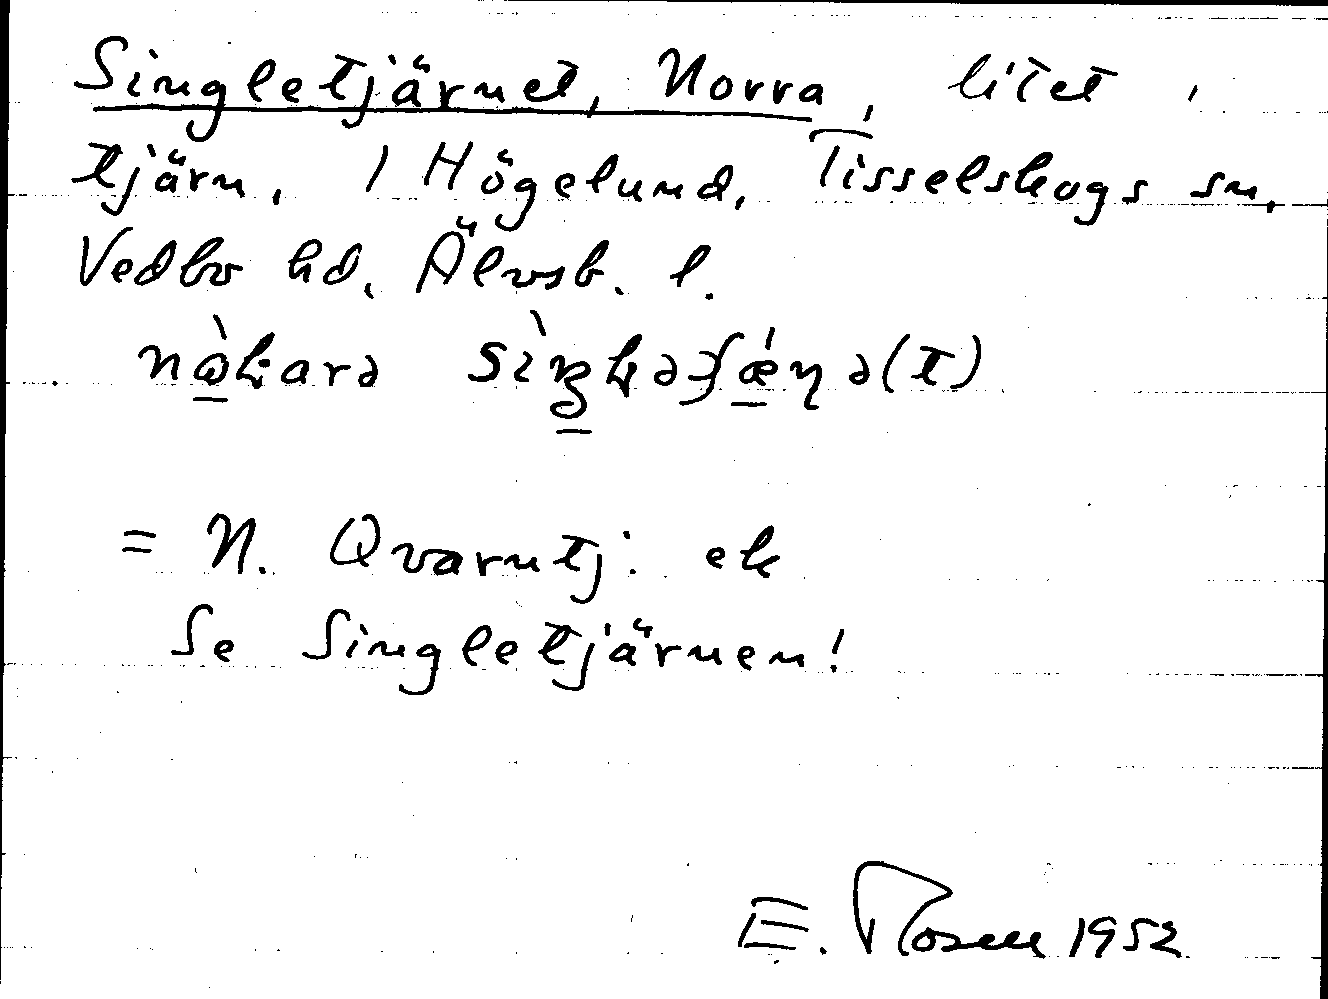 Singletjärnet, Norra, litet
tjärn, 1 Högelund, Tisselskogs sn,
Vedbo hd, Älvsb. l.
= N. Qvarntj: ek
Se Singletjärnen!
E. Rosell 1952